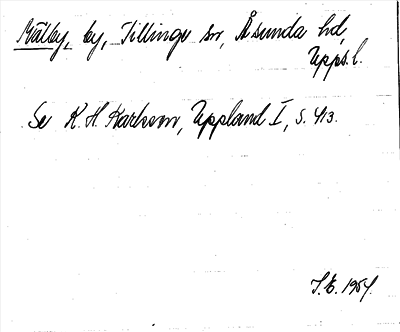 Mälby, by, Tillinge sn, Åsunda hd,
Upps. l.
Se K. H. Karlsson, Uppland I, s. 413.
S.E. 1954.